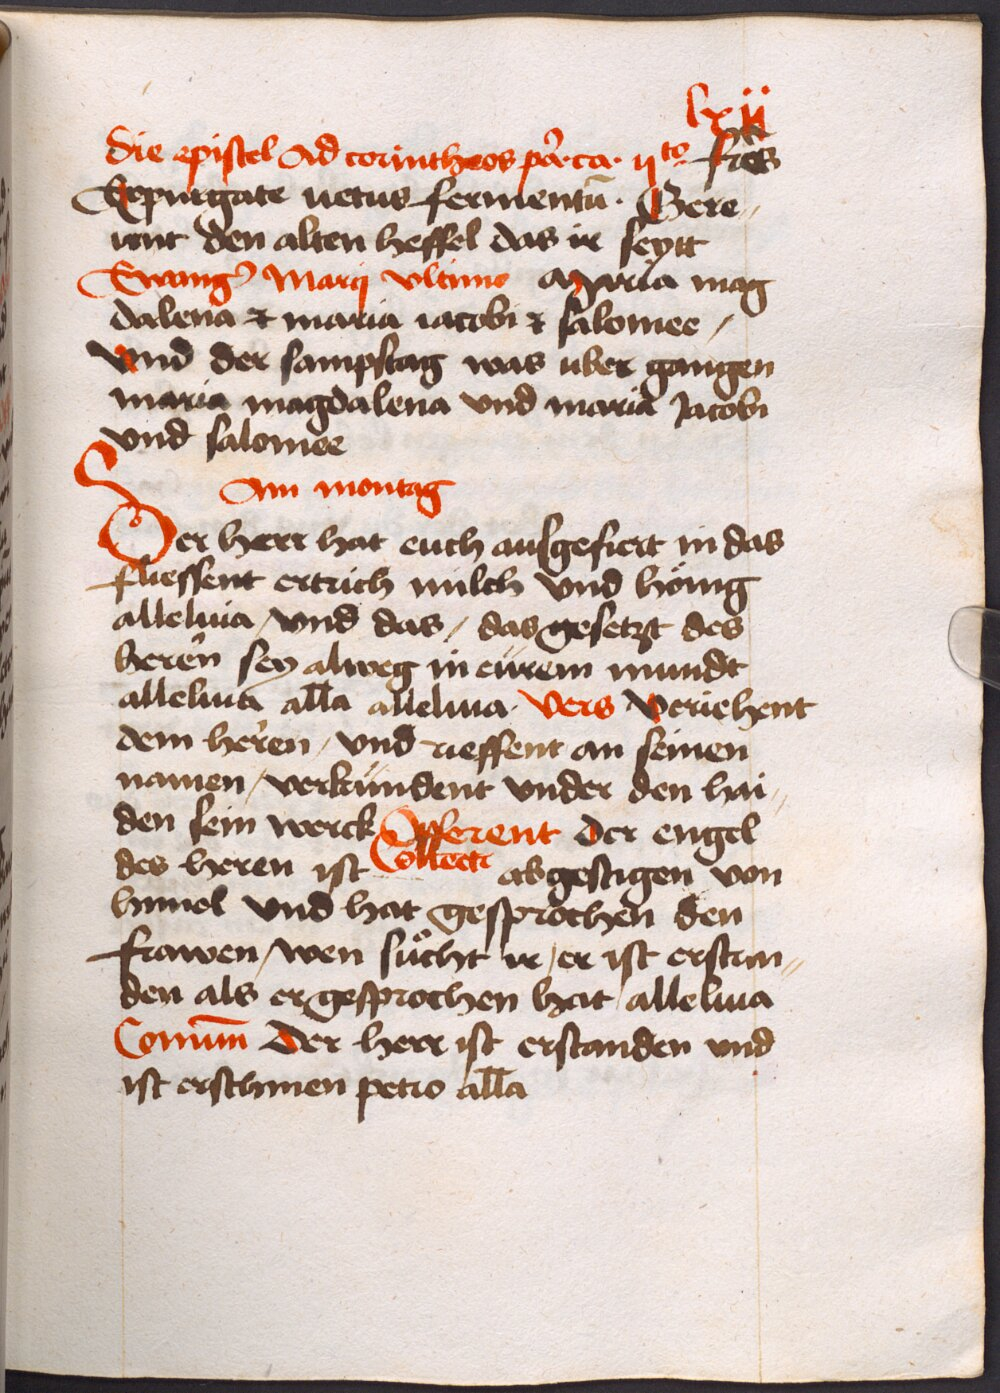 lxii
Die epistel Ad corintheos pͬa · ca · iito fres
Expurgate uetus fermentū · Gere〃
unt den alten heffel das ir seytt
Ewangͥ Marci vltimo Maria mag
dalena & maria iacobi & salomee /
Vnd der sampstag was uber gangen
maria magdalena vnd maria Jacobi
vnd salomee
Am montag
Der herr hat euch ausgefiert in das
fliessent ertrich milch vnd hönig
alleluia / vnd das / das gesetzt des
heren sey alweg in eürem mundt
alleluia alla alleluia · Vers Veriehent
dem heren / vnd rieffent an seinen
namen / verkündent vnder den hai〃
den sein werck Offerent Der engel
des heren ist Collect abgestigen von
himel vnd hat gesprochen den
frawen / wen sücht ir / er ist erstan〃
den als er gesprochen hat / alleluia
Comūn Der herr ist erstanden vnd
ist erschinen petro alla